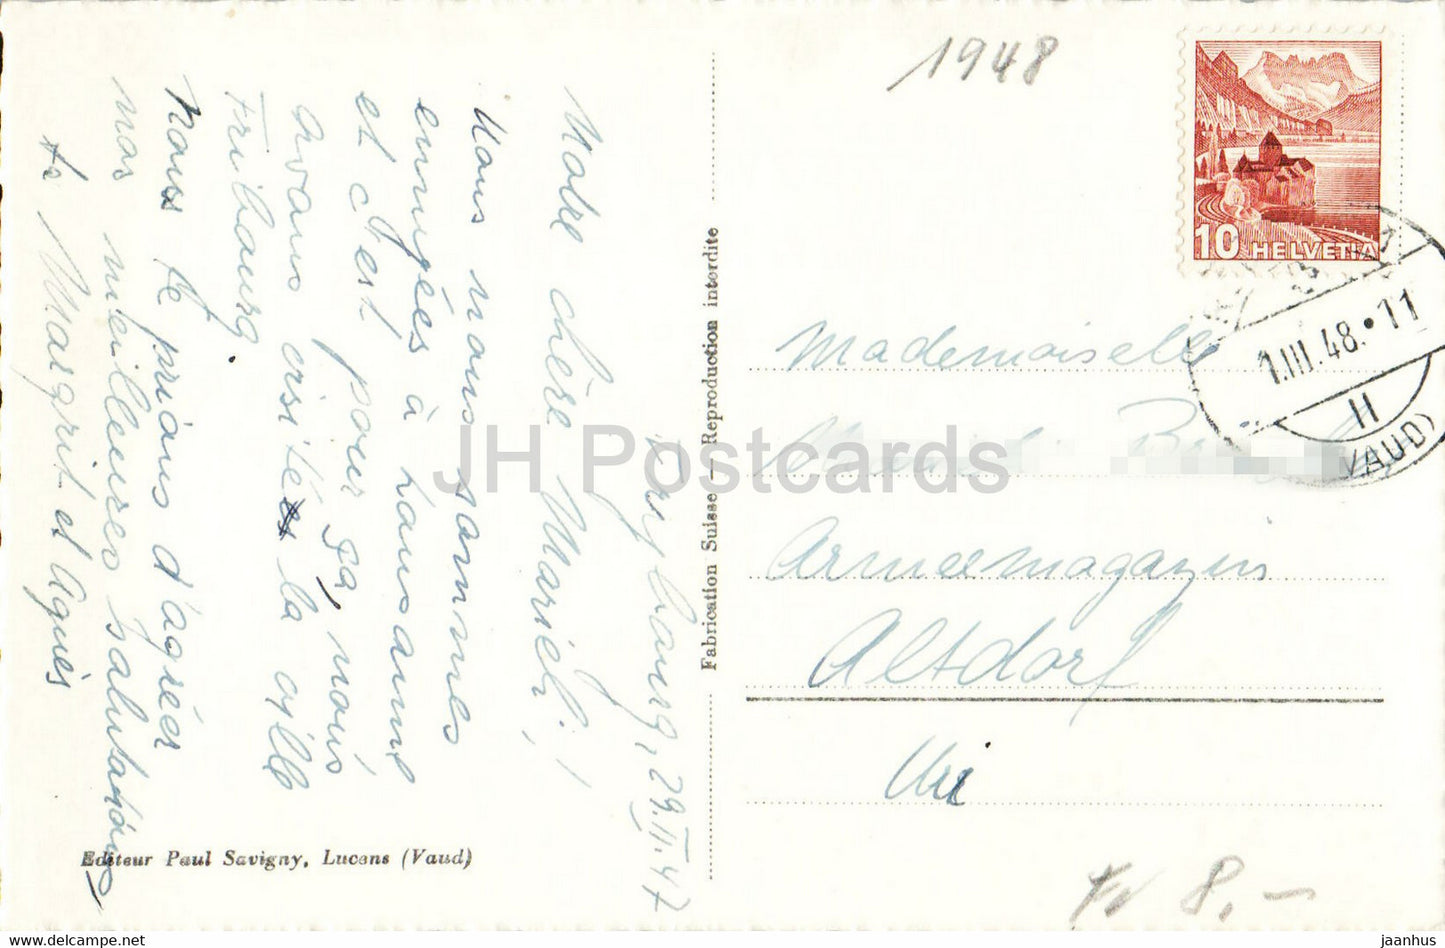 1948
Frybourg, 29.II.47
Notre chère Marieli!,
Nous nous sommes
ennuyées à Lausanne
et c'est pour ça, nous
avons visité la ville
Fribourg.
Nous te prions d'agréer
nos meilleures salutations
ta Margrit et Agnès
Editeur Paul Savigny, Lucens (Vaud)
Fabrication Suisse — Reproduction interdite
10 HELVETIA
1.III.48.11
II
(VAUD)
Mademoiselle
Armeemagazin
Altdorf
Uri
Fr 8,-
JH Postcards
www.delcampe.net
jaanhus